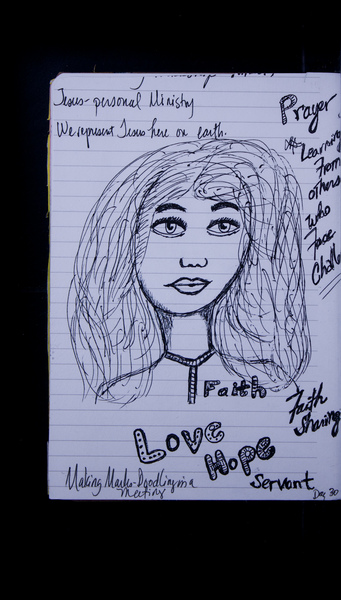 Jesus - personal Ministry
We represent Jesus here on earth.
Prayer
Learning
from
others
who
face
Faith
Faith
Sharing
Love
Hope
Servant
Making Marks - Doodling in a
meeting
Day 30